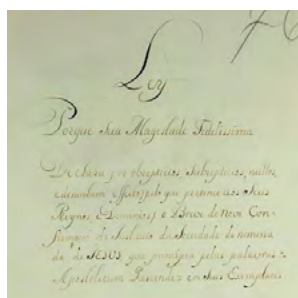 Ley
Porque Sua Magestade Fidelissima
Declara por obrepticio, Subrepticio, nullo,
e de nenhum effeito pelo que pertence aos Seus
Reynos, e Dominios, o Breve de Nova Con-
firmaçaõ do Instituto da Sociedade denomina-
da de JESUS, que principia pelas palavras =
Apostolicum Pascendi = em Seus Exemplares